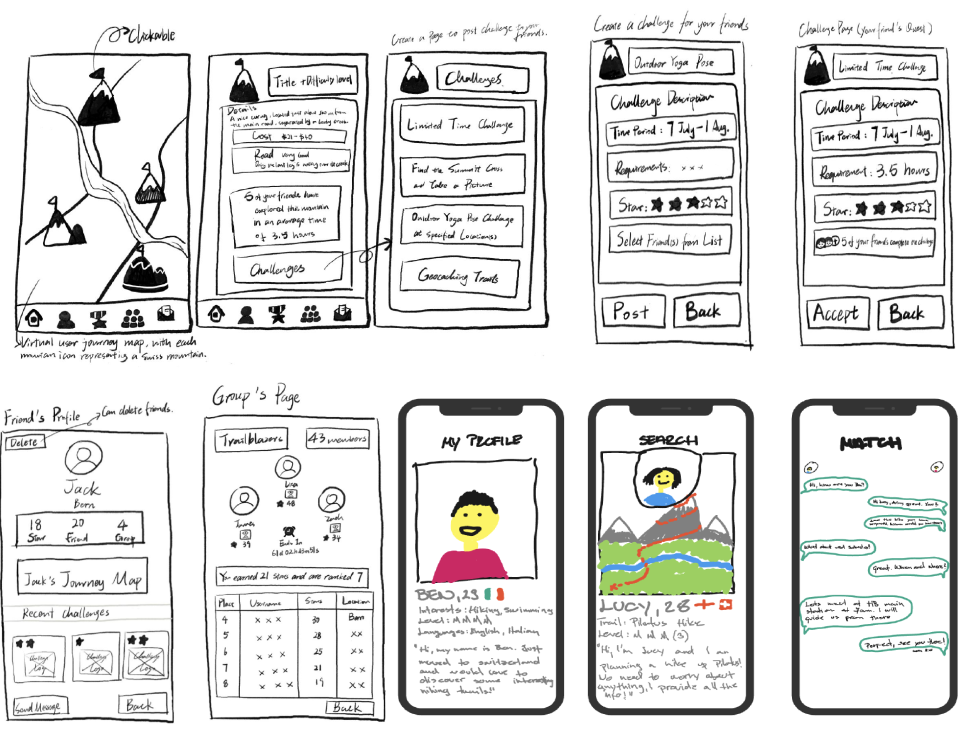 Clickable
Virtual user journey map, with each
mountain icon representing a Swiss mountain.
Title + Difficulty level
Details
Cost $21 - $50
Read very good
5 of your friends have
explored the mountain
in an average time
of 3.5 hours
Challenges
Create a Page to post challenge to your
friends.
Challenges
Limited Time Challenge
Find the Summit Cross
and Take a Picture
Outdoor Yoga Pose Challenge
at Specified Location(s)
Geocaching Trails
Create a challenge for your friends
Outdoor Yoga Pose
Challenge Description
Time Period: 7 July - 1 Aug.
Requirements: x x x
Star:
Select Friend(s) from List
Post
Back
Challenge Page (your friend's Quest)
Limited Time Challenge
Challenge Description
Time Period: 7 July - 1 Aug.
Requirement: 3.5 hours
Star:
5 of your friends
Accept
Back
Friend's Profile
Can delete friends.
Delete
Jack
Bern
18 20 4
Star Friend Group
Jack's Journey Map
Recent Challenges
Send Message
Back
Group's Page
Trailblazers
43 members
48
James
39
34
Ends In
You earned 21 stars and are ranked 7
Place Username Score Location
4 x x x 30 Bern
5 x x x 28 x x
6 x x x 25 x x
7 x x x 21 x x
8 x x x 19 x x
Back
MY PROFILE
BEN, 23
Interests: Hiking, Swimming
Level: M M M
Languages: English, Italian
"Hi, my name is Ben. Just
moved to Switzerland
and would love to
discover some interesting
hiking trails!"
SEARCH
LUCY, 28
Trail: Pilatus Hike
Level: M M M (3)
"Hi, I'm Lucy and I am
planning a hike up Pilatus!
No need to worry about
anything, I provide all the
info!"
MATCH
Hi, how are you Ben?
Great. When and where?
Lets meet at HB main
station at 9am. I will
guide us from there
Perfect, see you then!